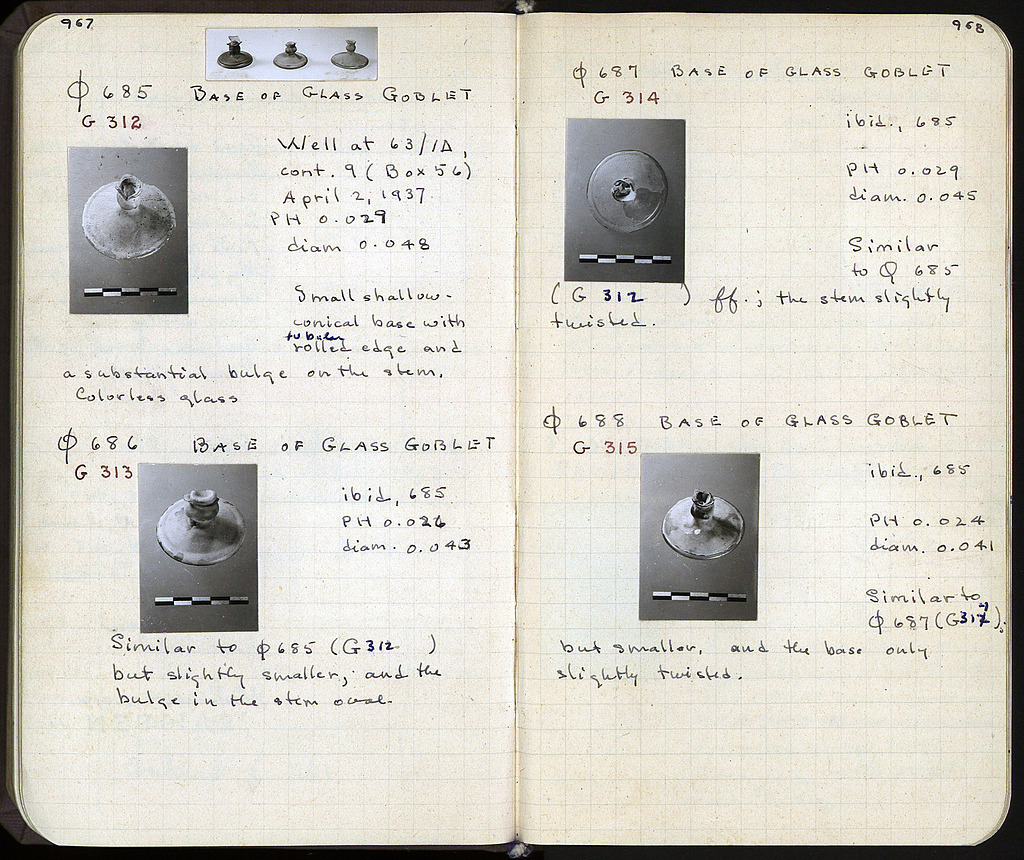 967
Φ 685 BASE OF GLASS GOBLET
G 312
Well at 63/ΙΔ,
cont. 9 (Box 56)
April 2, 1937
PH 0.029
diam 0.048
Small shallow-
conical base with
tubular
rolled edge and
a substantial bulge on the stem.
Colorless glass
Φ 686 BASE OF GLASS GOBLET
G 313
ibid, 685
PH 0.026
diam. 0.043
Similar to Φ 685 (G 312 )
but slightly smaller, and the
bulge in the stem oval.
968
Φ 687 BASE OF GLASS GOBLET
G 314
ibid., 685
PH 0.029
diam. 0.045
Similar
to Φ 685
(G 312 ) ff.; the stem slightly
twisted.
Φ 688 BASE OF GLASS GOBLET
G 315
ibid., 685
PH 0.024
diam. 0.041
Similar to
Φ 687 (G
but smaller, and the base only
slightly twisted.